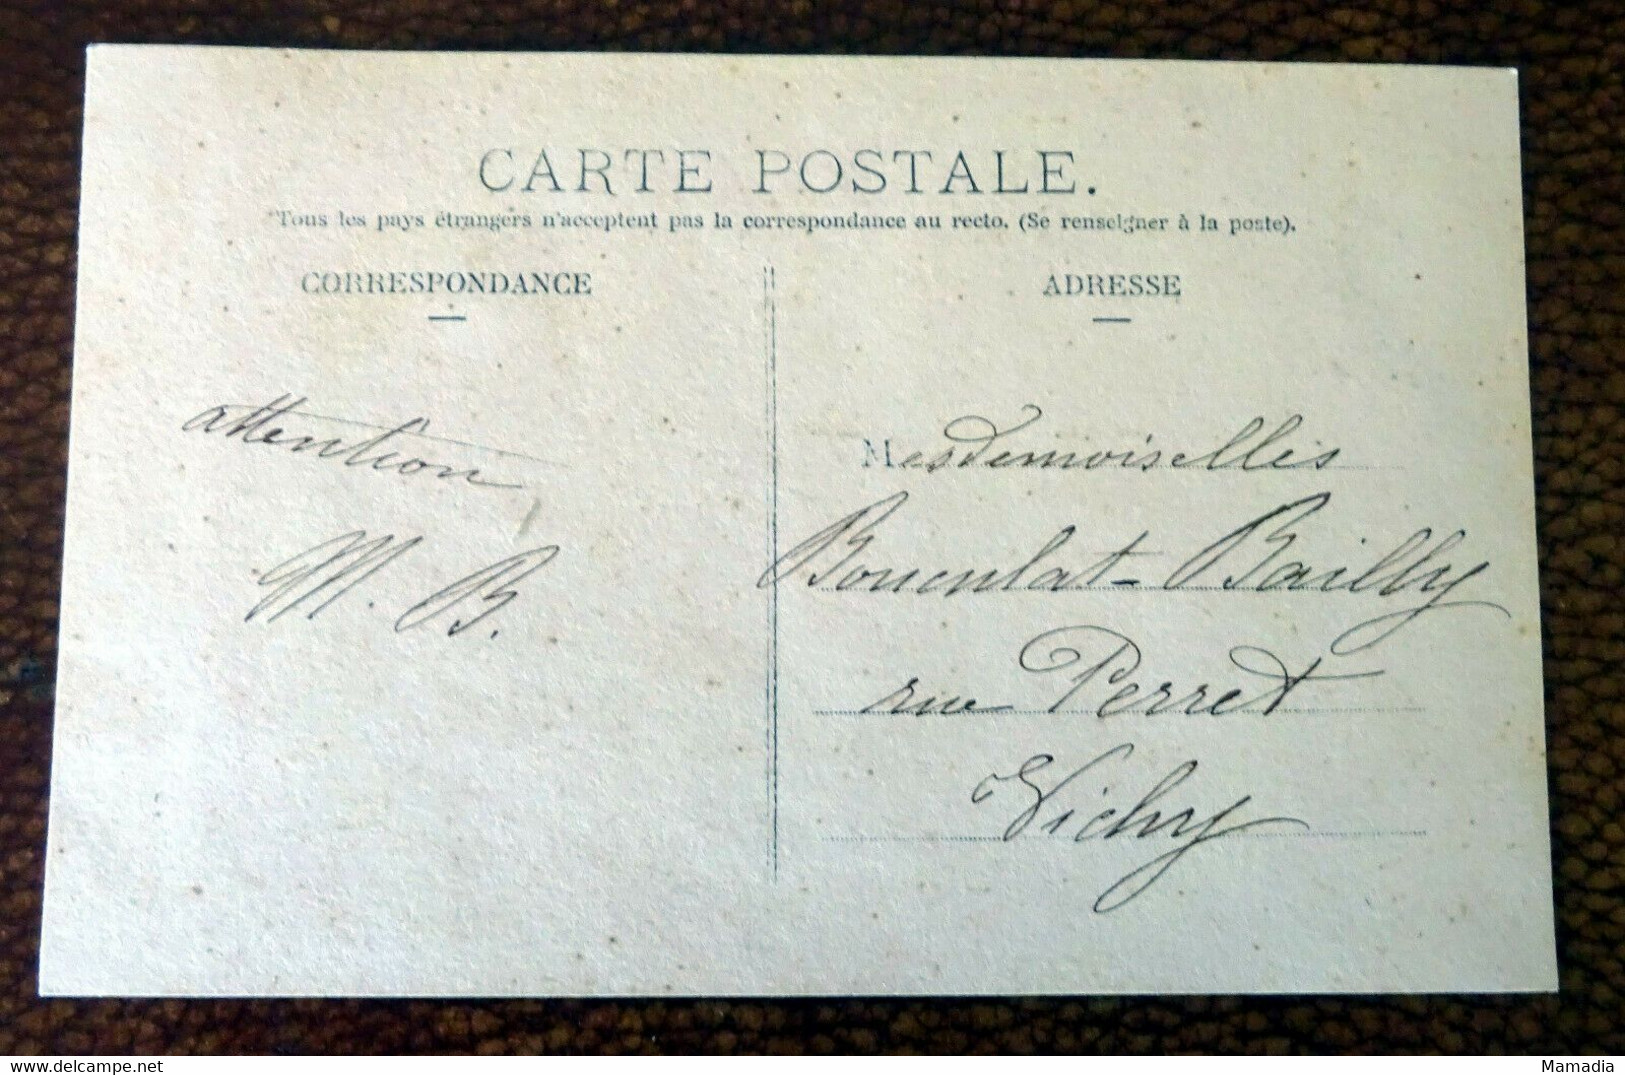 CARTE POSTALE.
Tous les pays étrangers n'acceptent pas la correspondance au recto. (Se renseigner à la poste).
CORRESPONDANCE
attention
M. B.
ADRESSE
Mesdemoiselles
Bouculat-Bailly
rue Perret
Vichy
Mamadia